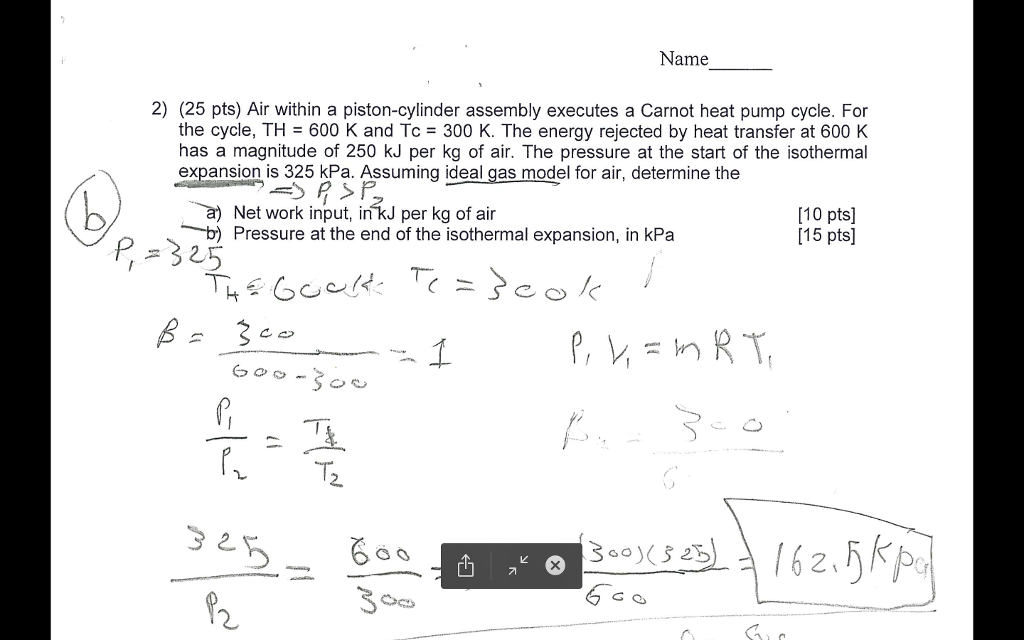 Name
2) (25 pts) Air within a piston-cylinder assembly executes a Carnot heat pump cycle. For
the cycle, TH = 600 K and Tc = 300 K. The energy rejected by heat transfer at 600 K
has a magnitude of 250 kJ per kg of air. The pressure at the start of the isothermal
expansion is 325 kPa. Assuming ideal gas model for air, determine the
⇒ P₁ > P₂
a) Net work input, in kJ per kg of air [10 pts]
b) Pressure at the end of the isothermal expansion, in kPa [15 pts]
b
P₁ = 325
T_H = 600K T_C = 300K
β = 300 / (600-300) = 1
P₁ V₁ = m R T₁
P₁ / P₂ = T₁ / T₂
325 / P₂ = 600 / 300 = (300)(325) / 600 = 162.5 kpa